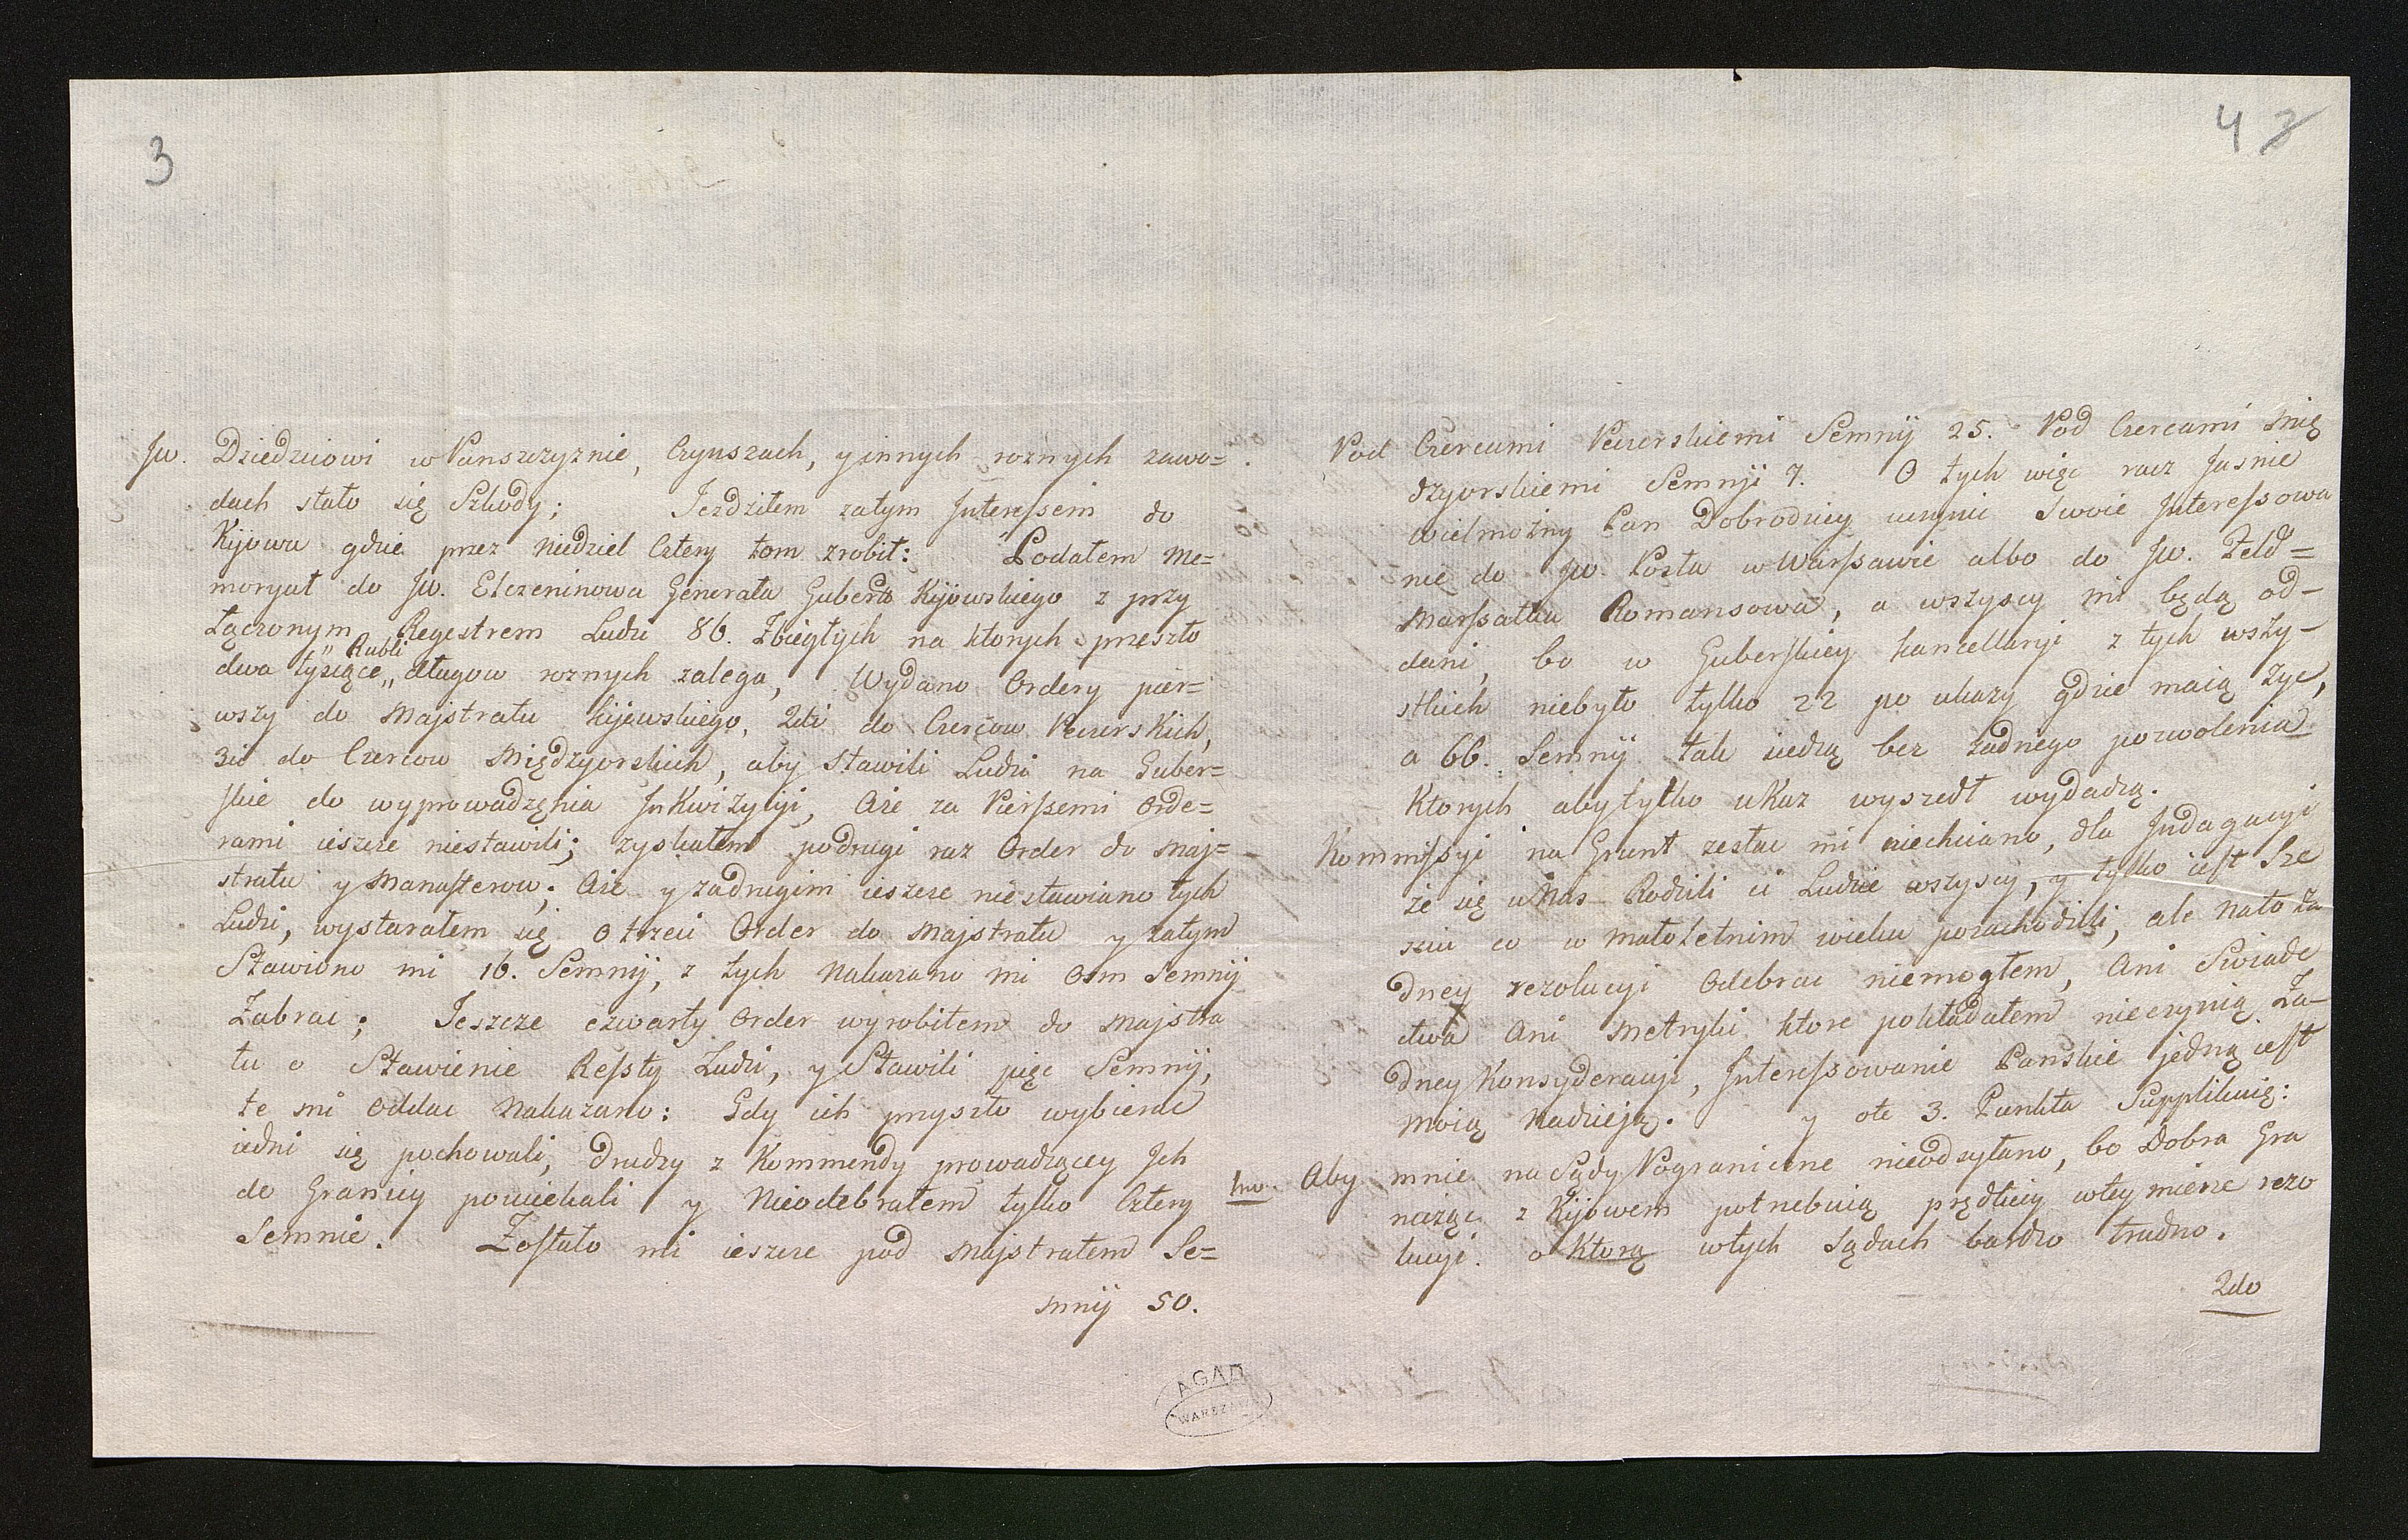 3
Jw. Dziedzicowi w Panszczyznie, Czynszach, y innych roznych zawo=
dach stało się Szkody; Jezdziłem zatym Interessem do
Kijowa gdzie przez niedziel Cztery tom zrobił: Podałem Me=
moryał do Jw. Elczeninowa Generała Gubera Kijowskiego z przy
łączonym Regestrem Ludzi 86. Zbiegłych na ktorych przeszło
Rubli
dwa tysiące,, długow roznych zalega, Wydano Ordery pier=
wszy do Majstratu kijewskiego, 2di do Czercow Peczerskich,
3ci do Czercow Międzygorskich, aby Stawili Ludzi na Guber=
skie do wyprowadzęnia InKwizycyi, Aże za Pierssemi Orde=
rami ieszcze niestawili; zyskałem podrugi raz Order do Maj=
stratu y Manasterow; Aże y zadrugim ieszcze niestawiano tych
Ludzi, wystarałem się o trzeci Order do Majstratu y zatym
Stawiono mi 16. Semnij, z tych Nakazano mi Osm Semnij
Zabrac; Jeszcze czwarty Order wyrobiłem do Majstra
tu o Stawienie Ressty Ludzi, y Stawili pięc Semnij,
te mi Oddac Nakazano: Gdy ich przyszło wybierac
iedni się pochowali, drudzy z Kommendy prowadzącey Ich
do Granicy pouciekali y Nieodebrałem tylko Cztery
Semnie. Zostało mi ieszcze pod Majstratem Se=
mnij 50.
AGAD
WARSZAWA
4 3
Pod Czercami Peczerskiemi Semnij 25. Pod Czercami Mię
dzygorskiemi Semnij 7. O tych więc racz Jasnie
wielmożny Pan Dobrodziey uczynic Swoie Interessowa
nie do Jw. Posła w Warssawie albo do Jw. Feld=
Marssałka Romansowa, a wszyscy mi będą od-
dani, bo w Guberskiey kancellaryi z tych wszy-
stkich niebyło tylko 22 po ukazy gdzie maią życ,
a 66. Semnij tak siedzą bez żadnego pozwolenia
Ktorych aby tylko ukaz wyszedł wydadzą.
Kommissyi na Grunt zesłac mi niechciano, dla Indagacyi
że się u Nas Rodzili ci Ludzie wszyscy, y tylko iest Sze
sciu co w małoletnim wieku pozachodzili, ale Nato ża
dney rezolucyi Odebrac niemogłem, Ani Swiade
ctwa Ani Metryki ktore pokładałem nieczynią Ża-
dney Konsyderacyi, Interessowanie Panskie jedną iest
moią Nadzieją. y ote 3. Punkta Supplikuię:
1mo. Aby mnie na Sądy Pograniczne nieodsyłano, bo Dobra Gra
niczące z Kijowem potrzebuią prędkiey wtey mierze rezo
lucyi. o Ktorą wtych Sądach bardzo trudno.
2do